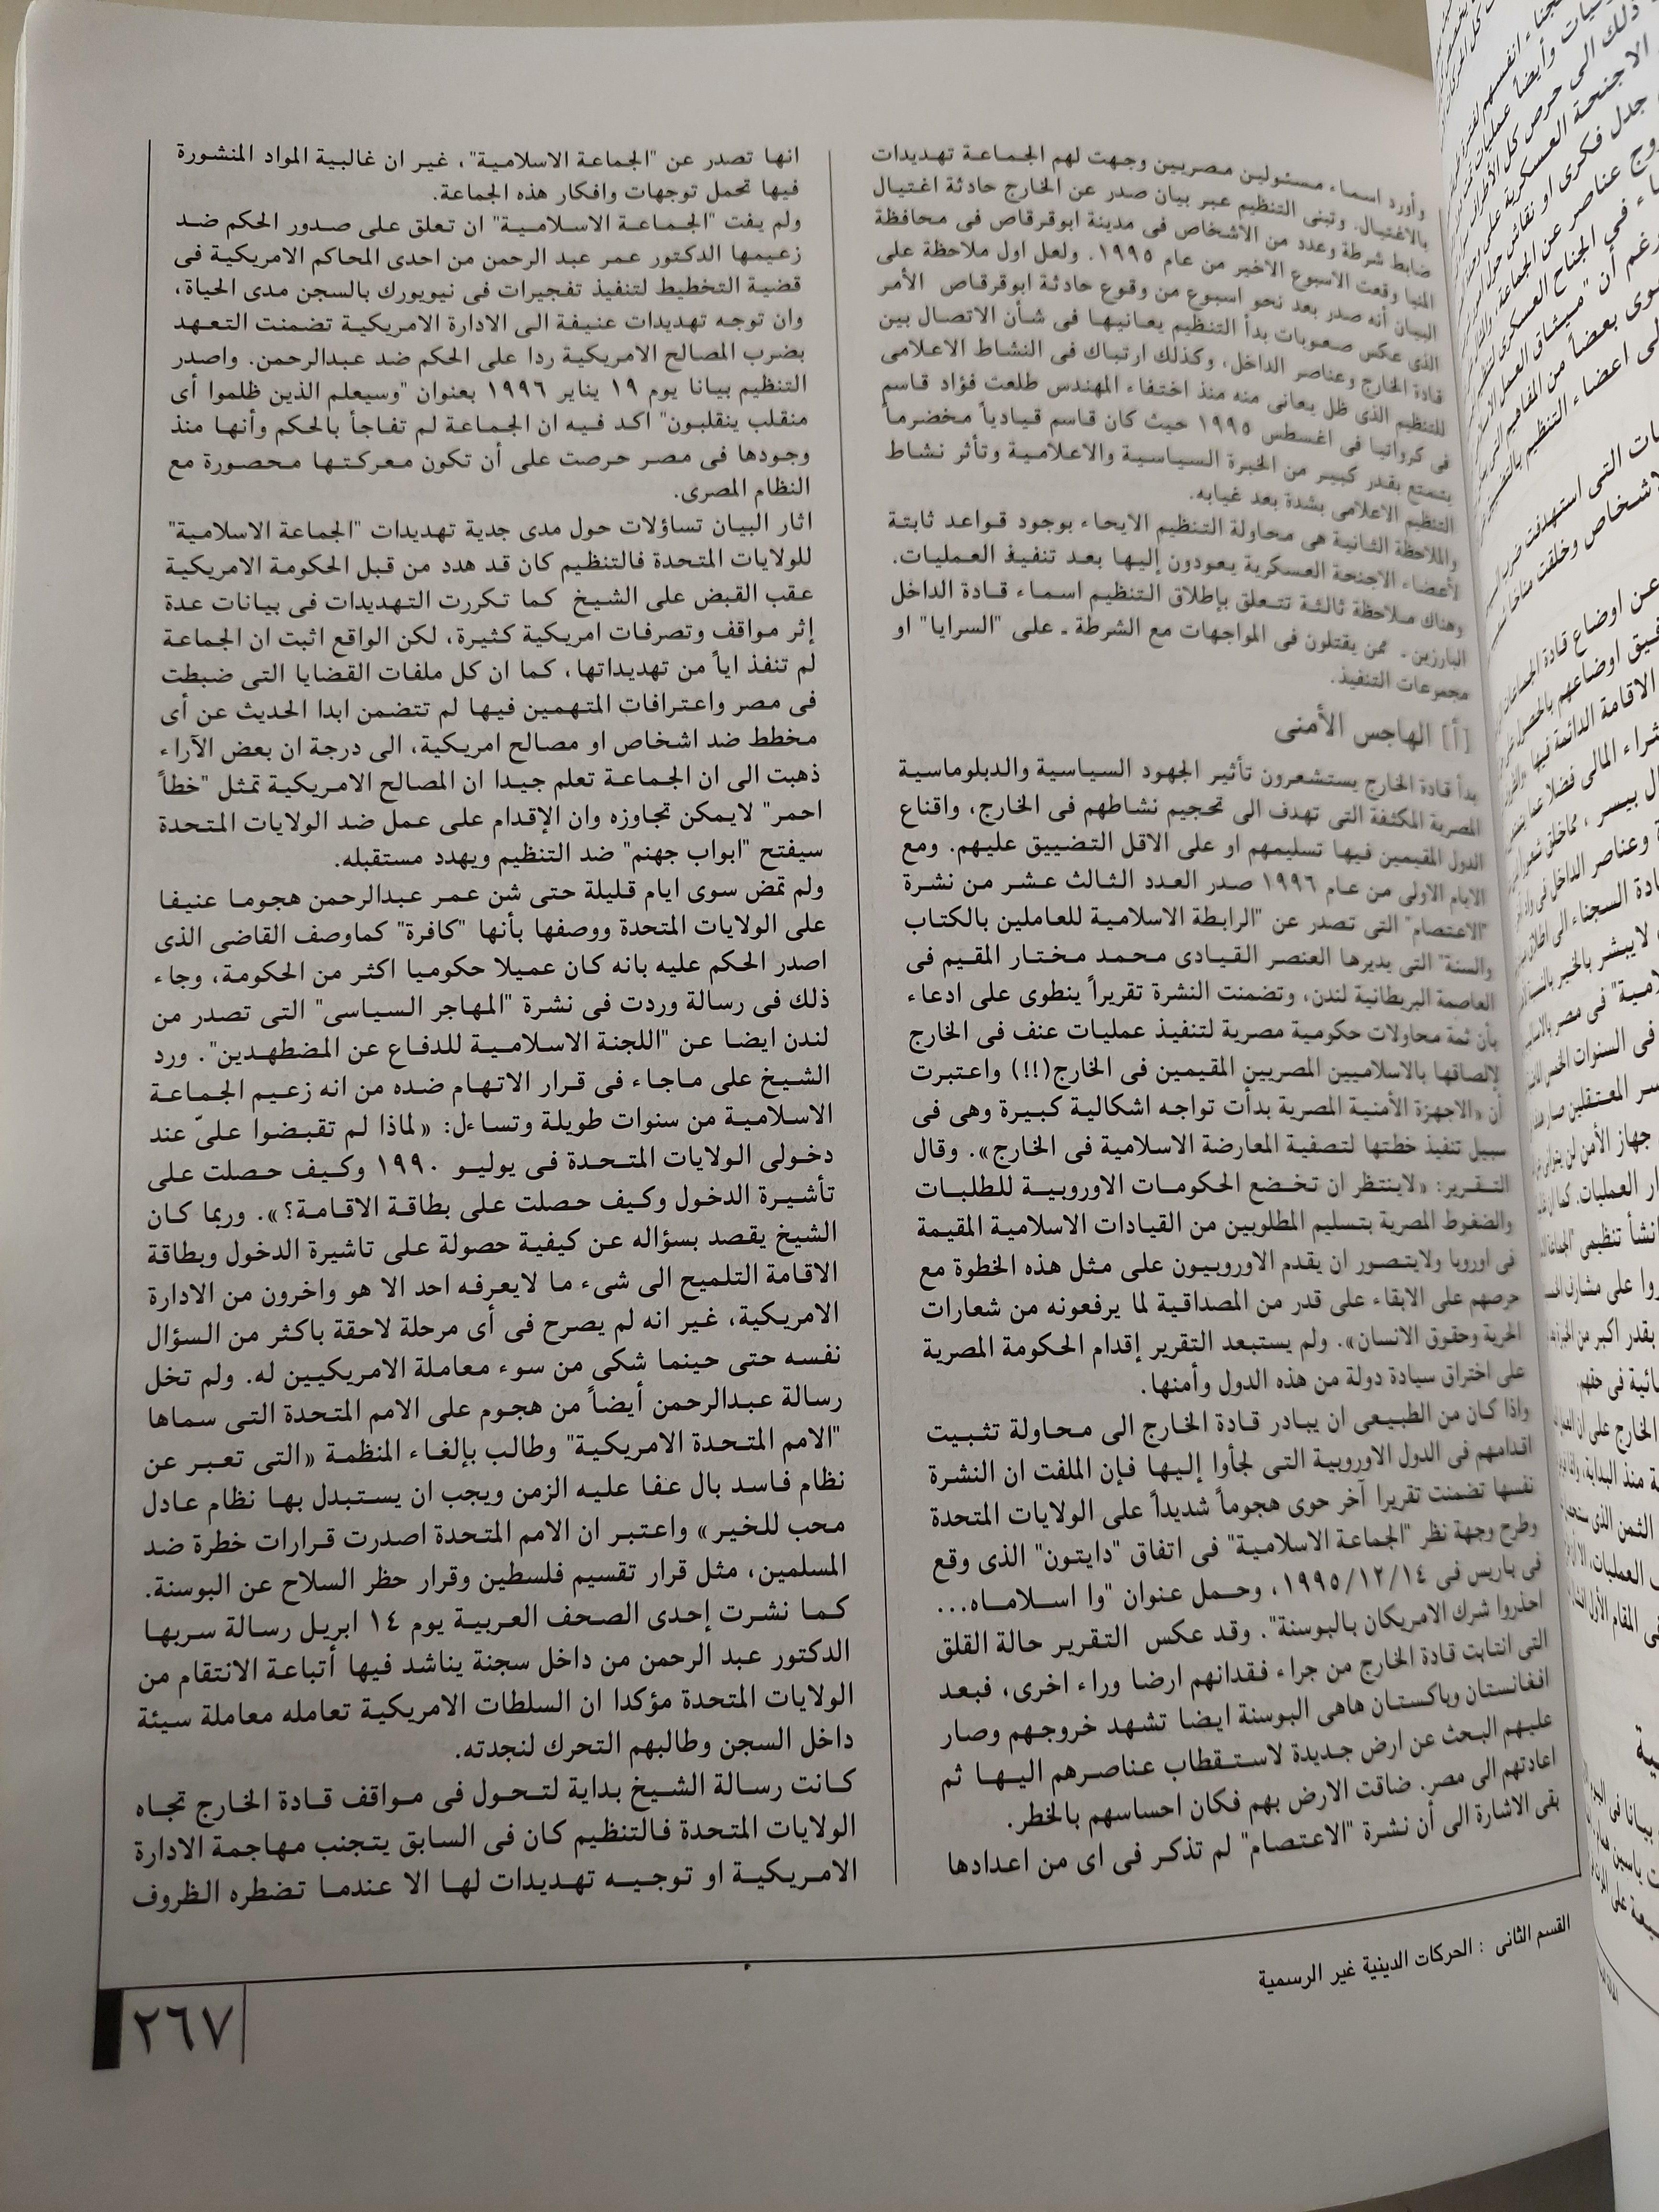 وأورد اسماء مسئولين مصريين وجهت لهم الجماعة تهديدات
بالاغتيال. وتبنى التنظيم عبر بيان صدر عن الخارج حادثة اغتيال
ضابط شرطة وعدد من الاشخاص فى مدينة ابوقرقاص فى محافظة
المنيا وقعت الاسبوع الاخير من عام ١٩٩٥. ولعل اول ملاحظة على
البيان أنه صدر بعد نحو اسبوع من وقوع حادثة ابوقرقاص الأمر
الذى عكس صعوبات بدأ التنظيم يعانيها فى شأن الاتصال بين
قادة الخارج وعناصر الداخل، وكذلك ارتباك فى النشاط الاعلامى
للتنظيم الذى ظل يعانى منه منذ اختفاء المهندس طلعت فؤاد قاسم
فى كرواتيا فى اغسطس ١٩٩٥ حيث كان قاسم قيادياً مخضرماً
يتمتع بقدر كبير من الخبرة السياسية والاعلامية وتأثر نشاط
التنظيم الاعلامى بشدة بعد غيابه.
والملاحظة الثانية هى محاولة التنظيم الايحاء بوجود قواعد ثابتة
لأعضاء الاجنحة العسكرية يعودون إليها بعد تنفيذ العمليات.
وهناك ملاحظة ثالثة تتعلق بإطلاق التنظيم اسماء قادة الداخل
البارزين ـ ممن يقتلون فى المواجهات مع الشرطة ـ على "السرايا" او
مجموعات التنفيذ.
[أ] الهاجس الأمنى
بدأ قادة الخارج يستشعرون تأثير الجهود السياسية والدبلوماسية
المصرية المكثفة التى تهدف الى تحجيم نشاطهم فى الخارج، واقناع
الدول المقيمين فيها تسليمهم او على الاقل التضييق عليهم. ومع
الايام الاولى من عام ١٩٩٦ صدر العدد الثالث عشر من نشرة
"الاعتصام" التى تصدر عن "الرابطة الاسلامية للعاملين بالكتاب
والسنة" التى يديرها العنصر القيادى محمد مختار المقيم فى
العاصمة البريطانية لندن، وتضمنت النشرة تقريراً ينطوى على ادعاء
بأن ثمة محاولات حكومية مصرية لتنفيذ عمليات عنف فى الخارج
لإلصاقها بالاسلاميين المصريين المقيمين فى الخارج(!!) واعتبرت
أن «الاجهزة الأمنية المصرية بدأت تواجه اشكالية كبيرة وهى فى
سبيل تنفيذ خطتها لتصفية المعارضة الاسلامية فى الخارج». وقال
التقرير: «لاينتظر ان تخضع الحكومات الاوروبية للطلبات
والضغوط المصرية بتسليم المطلوبين من القيادات الاسلامية المقيمة
فى اوروبا ولايتصور ان يقدم الاوروبيون على مثل هذه الخطوة مع
حرصهم على الابقاء على قدر من المصداقية لما يرفعونه من شعارات
الحرية وحقوق الانسان». ولم يستبعد التقرير إقدام الحكومة المصرية
على اختراق سيادة دولة من هذه الدول وأمنها.
واذا كان من الطبيعى ان يبادر قادة الخارج الى محاولة تثبيت
اقدامهم فى الدول الاوروبية التى لجأوا إليها فإن الملفت ان النشرة
نفسها تضمنت تقريرا آخر حوى هجوماً شديداً على الولايات المتحدة
وطرح وجهة نظر "الجماعة الاسلامية" فى اتفاق "دايتون" الذى وقع
فى باريس فى ١٩٩٥/١٢/١٤، وحمل عنوان "وا اسلاماه...
احذروا شرك الامريكان بالبوسنة". وقد عكس التقرير حالة القلق
التى انتابت قادة الخارج من جراء فقدانهم ارضا وراء اخرى، فبعد
افغانستان وباكستان هاهى البوسنة ايضا تشهد خروجهم وصار
عليهم البحث عن ارض جديدة لاستقطاب عناصرهم اليها ثم
اعادتهم الى مصر. ضاقت الارض بهم فكان احساسهم بالخطر.
بقى الاشارة الى أن نشرة "الاعتصام" لم تذكر فى اى من اعدادها
انها تصدر عن "الجماعة الاسلامية"، غير ان غالبية المواد المنشورة
فيها تحمل توجهات وافكار هذه الجماعة.
ولم يفت "الجماعة الاسلامية" ان تعلق على صدور الحكم ضد
زعيمها الدكتور عمر عبد الرحمن من احدى المحاكم الامريكية فى
قضية التخطيط لتنفيذ تفجيرات فى نيويورك بالسجن مدى الحياة،
وان توجه تهديدات عنيفة الى الادارة الامريكية تضمنت التعهد
بضرب المصالح الامريكية ردا على الحكم ضد عبدالرحمن. واصدر
التنظيم بيانا يوم ١٩ يناير ١٩٩٦ بعنوان "وسيعلم الذين ظلموا أى
منقلب ينقلبون" اكد فيه ان الجماعة لم تفاجأ بالحكم وأنها منذ
وجودها فى مصر حرصت على أن تكون معركتها محصورة مع
النظام المصرى.
اثار البيان تساؤلات حول مدى جدية تهديدات "الجماعة الاسلامية"
للولايات المتحدة فالتنظيم كان قد هدد من قبل الحكومة الامريكية
عقب القبض على الشيخ كما تكررت التهديدات فى بيانات عدة
إثر مواقف وتصرفات امريكية كثيرة، لكن الواقع اثبت ان الجماعة
لم تنفذ اياً من تهديداتها، كما ان كل ملفات القضايا التى ضبطت
فى مصر واعترافات المتهمين فيها لم تتضمن ابدا الحديث عن أى
مخطط ضد اشخاص او مصالح امريكية، الى درجة ان بعض الآراء
ذهبت الى ان الجماعة تعلم جيدا ان المصالح الامريكية تمثل "خطاً
احمر" لايمكن تجاوزه وان الإقدام على عمل ضد الولايات المتحدة
سيفتح "ابواب جهنم" ضد التنظيم ويهدد مستقبله.
ولم تمض سوى ايام قليلة حتى شن عمر عبدالرحمن هجوما عنيفا
على الولايات المتحدة ووصفها بأنها "كافرة" كماوصف القاضى الذى
اصدر الحكم عليه بانه كان عميلا حكوميا اكثر من الحكومة، وجاء
ذلك فى رسالة وردت فى نشرة "المهاجر السياسى" التى تصدر من
لندن ايضا عن "اللجنة الاسلامية للدفاع عن المضطهدين". ورد
الشيخ على ماجاء فى قرار الاتهام ضده من انه زعيم الجماعة
الاسلامية من سنوات طويلة وتساءل: «لماذا لم تقبضوا علىّ عند
دخولى الولايات المتحدة فى يوليو ١٩٩٠ وكيف حصلت على
تأشيرة الدخول وكيف حصلت على بطاقة الاقامة؟». وربما كان
الشيخ يقصد بسؤاله عن كيفية حصولة على تاشيرة الدخول وبطاقة
الاقامة التلميح الى شىء ما لايعرفه احد الا هو واخرون من الادارة
الامريكية، غير انه لم يصرح فى أى مرحلة لاحقة باكثر من السؤال
نفسه حتى حينما شكى من سوء معاملة الامريكيين له. ولم تخل
رسالة عبدالرحمن أيضاً من هجوم على الامم المتحدة التى سماها
"الامم المتحدة الامريكية" وطالب بإلغاء المنظمة «التى تعبر عن
نظام فاسد بال عفا عليه الزمن ويجب ان يستبدل بها نظام عادل
محب للخير» واعتبر ان الامم المتحدة اصدرت قرارات خطرة ضد
المسلمين، مثل قرار تقسيم فلسطين وقرار حظر السلاح عن البوسنة.
كما نشرت إحدى الصحف العربية يوم ١٤ ابريل رسالة سربها
الدكتور عبد الرحمن من داخل سجنة يناشد فيها أتباعة الانتقام من
الولايات المتحدة مؤكدا ان السلطات الامريكية تعامله معاملة سيئة
داخل السجن وطالبهم التحرك لنجدته.
كانت رسالة الشيخ بداية لتحول فى مواقف قادة الخارج تجاه
الولايات المتحدة فالتنظيم كان فى السابق يتجنب مهاجمة الادارة
الامريكية او توجيه تهديدات لها الا عندما تضطره الظروف
القسم الثانى : الحركات الدينية غير الرسمية
٢٦٧